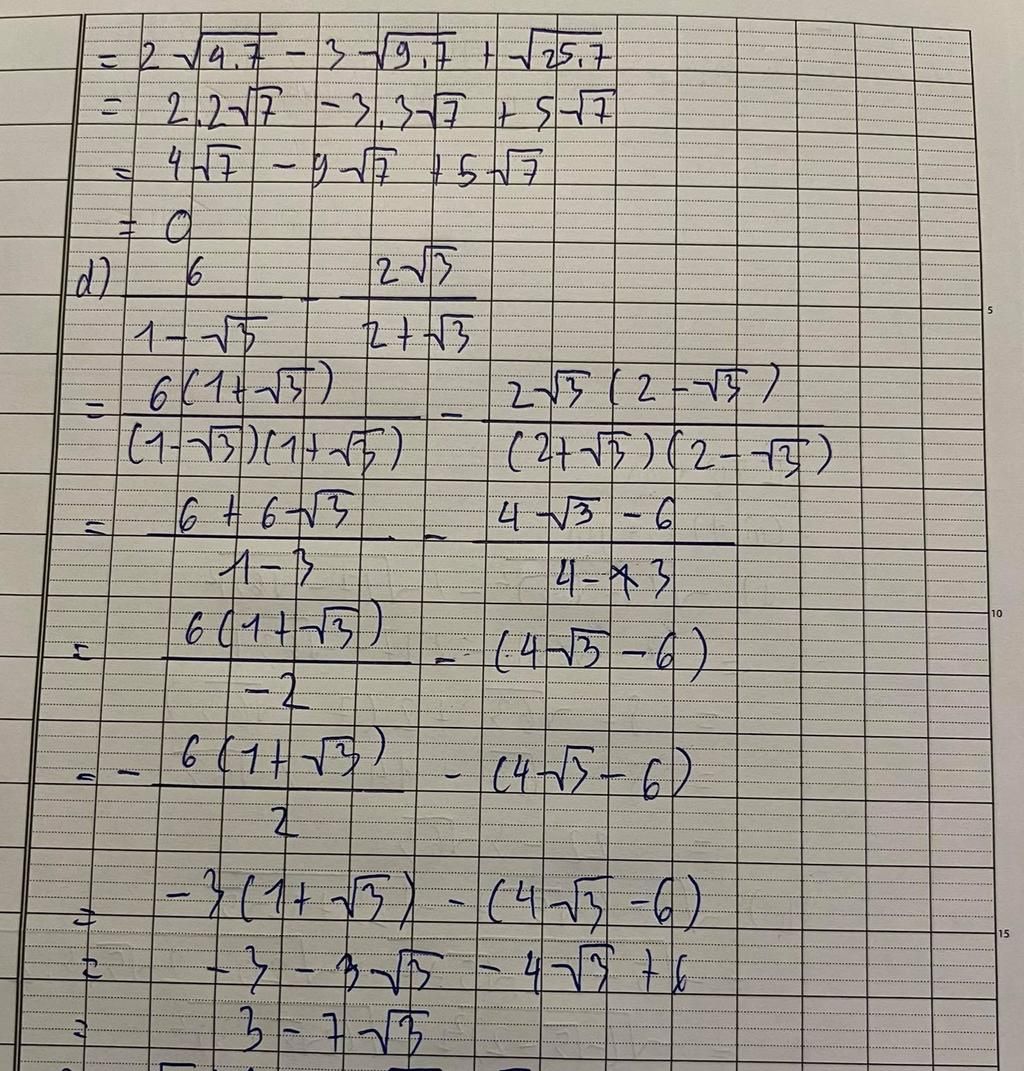 = 2√4.7 - 3√9.7 + √25.7
= 2.2√7 - 3.3√7 + 5√7
= 4√7 - 9√7 + 5√7
= 0
d) 6/(1-√3) - 2√3/(2+√3)
5
= 6(1+√3)/((1-√3)(1+√3)) - 2√3(2-√3)/((2+√3)(2-√3))
= (6+6√3)/(1-3) - (4√3-6)/(4-3)
10
= 6(1+√3)/(-2) - (4√3-6)
= - 6(1+√3)/2 - (4√3-6)
= -3(1+√3) - (4√3-6)
15
= -3 - 3√3 - 4√3 + 6
= 3 - 7√3